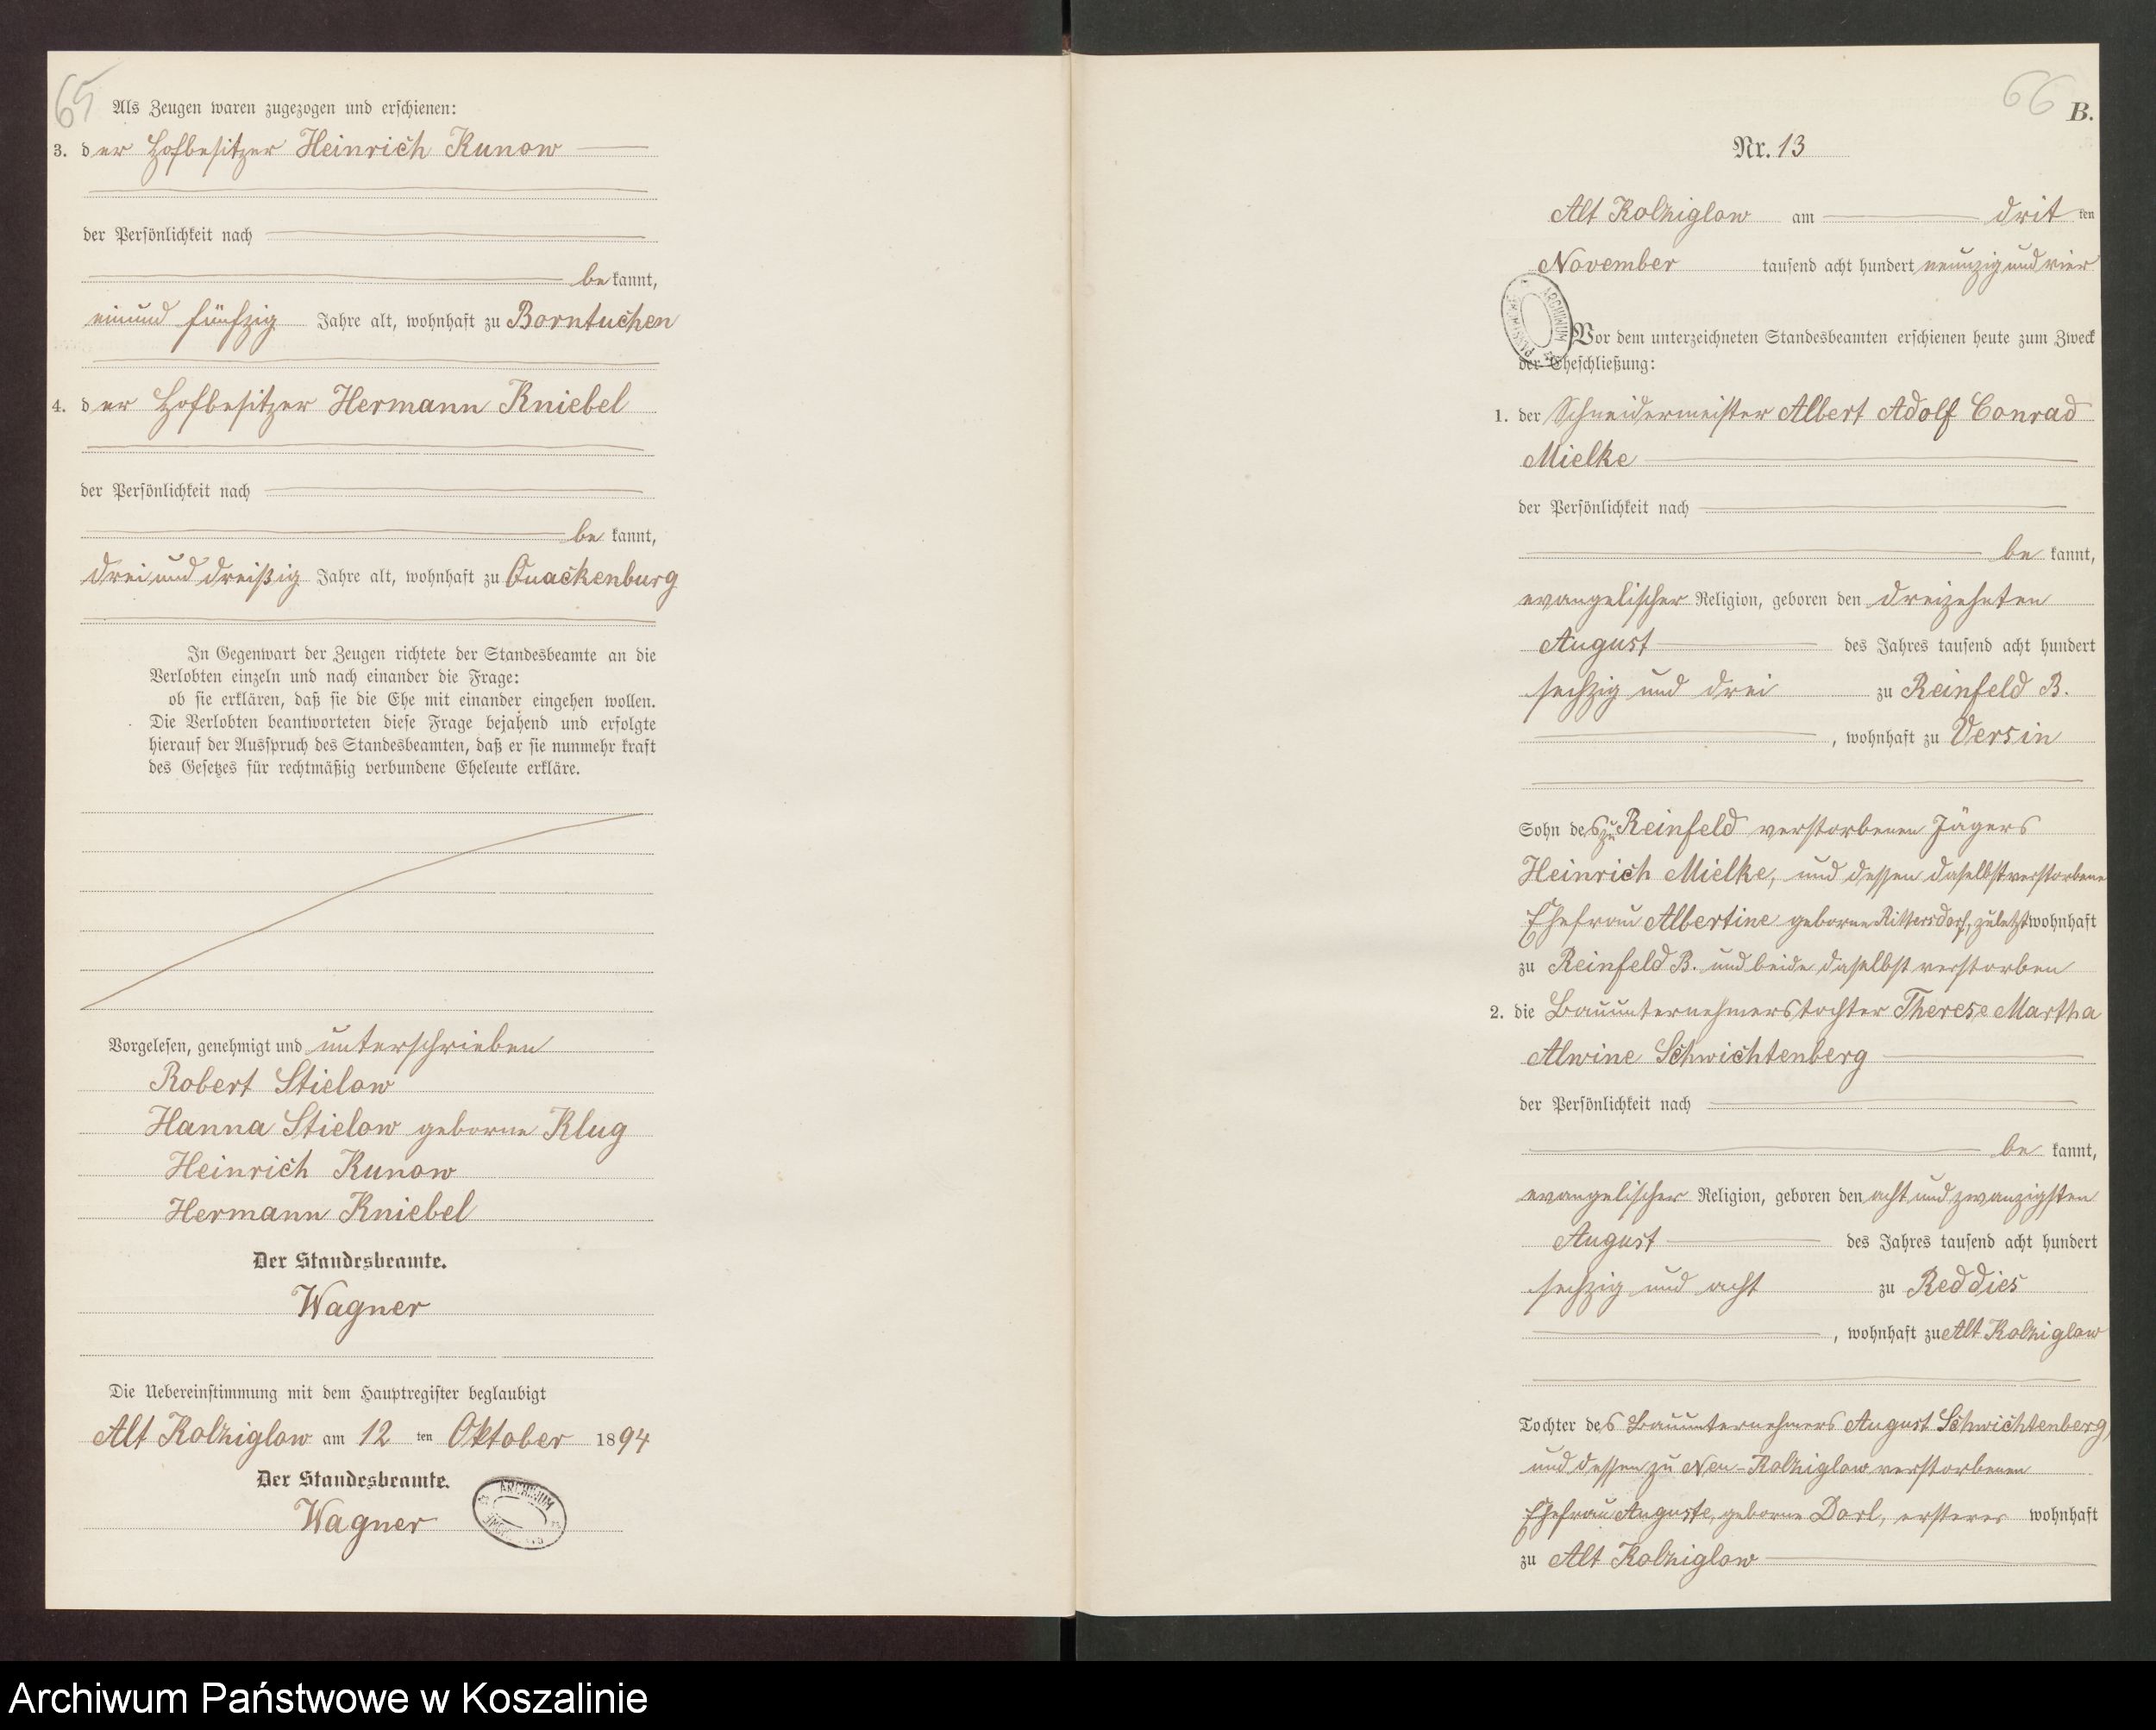 65
Als Zeugen waren zugezogen und erschienen:
3. der Hofbesitzer Heinrich Kunow
der Persönlichkeit nach
bekannt,
einund fünfzig Jahre alt, wohnhaft zu Borntuchen
4. der Hofbesitzer Hermann Kniebel
der Persönlichkeit nach
be kannt,
drei und dreißig Jahre alt, wohnhaft zu Quackenburg
In Gegenwart der Zeugen richtete der Standesbeamte an die
Verlobten einzeln und nach einander die Frage:
ob sie erklären, daß sie die Ehe mit einander eingehen wollen.
Die Verlobten beantworteten diese Frage bejahend und erfolgte
hierauf der Ausspruch des Standesbeamten, daß er sie nunmehr kraft
des Gesetzes für rechtmäßig verbundene Eheleute erkläre.
Vorgelesen, genehmigt und unterschrieben
Robert Stielow
Hanna Stielow geborne Klug
Heinrich Kunow
Hermann Kniebel
Der Standesbeamte.
Wagner
Die Uebereinstimmung mit dem Hauptregister beglaubigt
Alt Kolziglow am 12 ten Oktober 1894
Der Standesbeamte.
Wagner
ARCHIWUM
66
B.
Nr. 13
Alt Kolziglow am dritten
November tausend acht hundert neunzig und vier
ARCHIWUM
Vor dem unterzeichneten Standesbeamten erschienen heute zum Zweck
der Eheschließung:
1. der Schneidermeister Albert Adolf Conrad
Mielke
der Persönlichkeit nach
be kannt,
evangelischer Religion, geboren den dreizehnten
August des Jahres tausend acht hundert
sechzig und drei zu Reinfeld B.
, wohnhaft zu Versin
Sohn des zu Reinfeld verstorbenen Jägers
Heinrich Mielke, und dessen daselbst verstorbene
Ehefrau Albertine geborne Rittersdorf, zuletzt wohnhaft
zu Reinfeld B. und beide daselbst verstorben
2. die Bauunternehmerstochter Therese Martha
Alwine Schwichtenberg
der Persönlichkeit nach
be kannt,
evangelischer Religion, geboren den acht und zwanzigsten
August des Jahres tausend acht hundert
sechzig und acht zu Reddies
, wohnhaft zu Alt Kolziglow
Tochter des Bauunternehmers August Schwichtenberg,
und dessen zu Neu-Kolziglow verstorbenen
Ehefrau Auguste, geborne Darl, ersterer wohnhaft
zu Alt Kolziglow
Archiwum Państwowe w Koszalinie